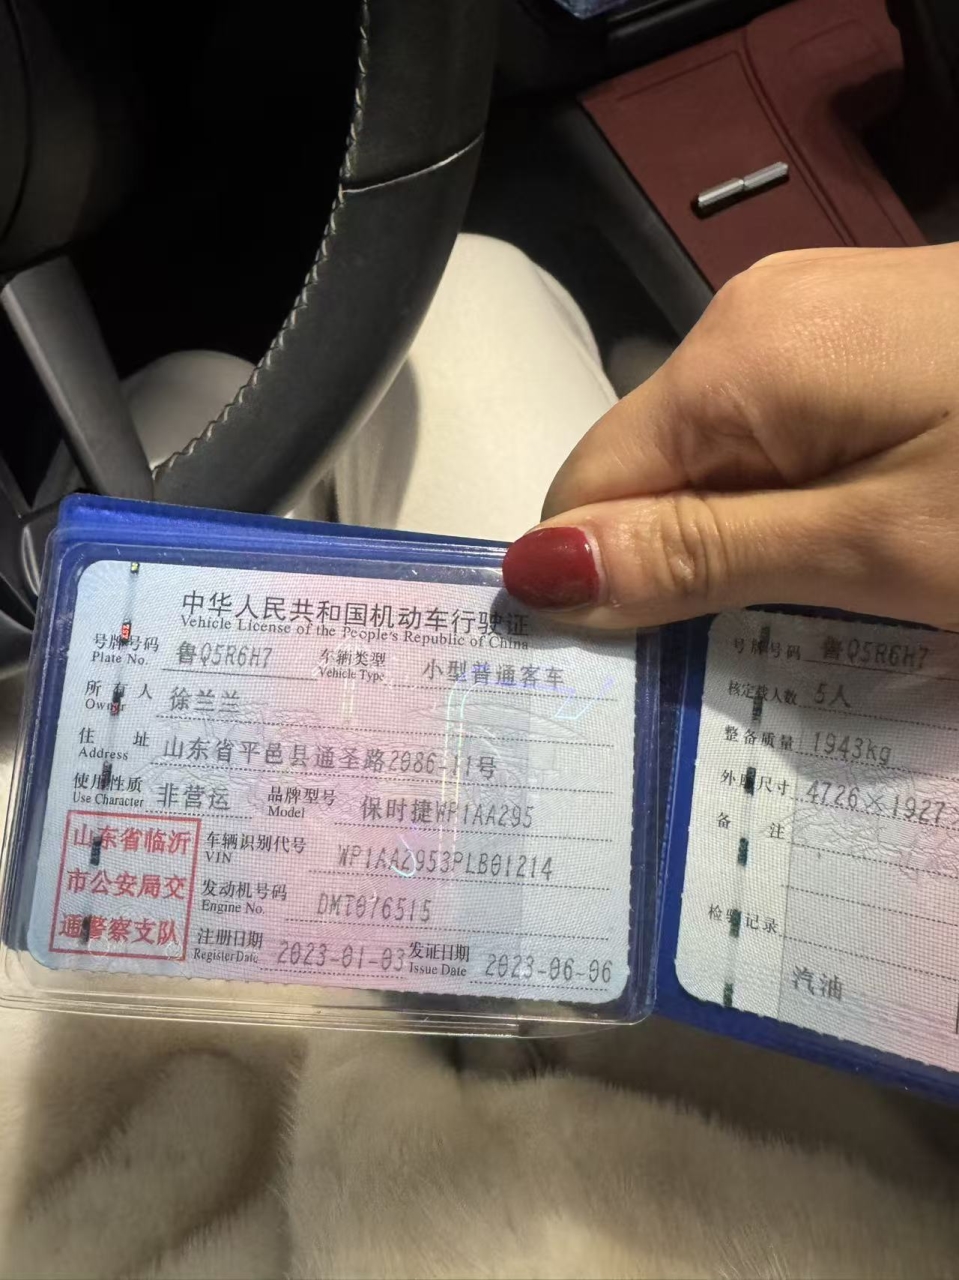 中华人民共和国机动车行驶证
Vehicle License of the People's Republic of China
号牌号码 鲁Q5R6H7 车辆类型 小型普通客车
Plate No. Vehicle Type
所有人 徐兰兰
Owner
住址 山东省平邑县通圣路2086-11号
Address
使用性质 非营运 品牌型号 保时捷WP1AA295
Use Character Model
山东省临沂
市公安局交
通警察支队
车辆识别代号 WP1AA2953PLB01214
VIN
发动机号码 DMT076515
Engine No.
注册日期 2023-01-03 发证日期 2023-06-06
Register Date Issue Date
号牌号码 鲁Q5R6H7
核定载人数 5人
整备质量 1943kg
外廓尺寸 4726×1927×
备注
检验记录
汽油